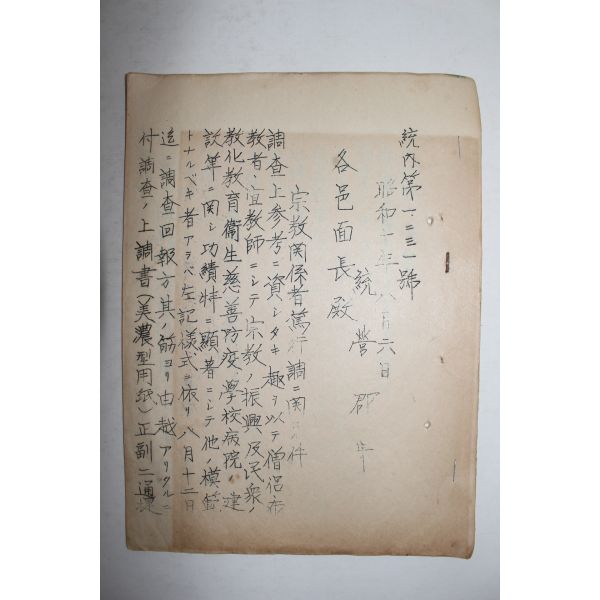 統内第一二三一號
昭和十年八月六日
統營郡守
各邑面長殿
宗教関係者篤行調ニ関スル件
調査上参考ニ資シタキ趣ヲ以テ僧侶布
教者、宣教師ニシテ宗教ノ振興及民衆ノ
教化教育衛生慈善防疫学校病院ノ建
設等ニ関シ功績特ニ顕著ニシテ他ノ模範
トナルベキ者アラバ左記様式ニ依リ八月十二日
迄ニ調査回報方其ノ筋ヨリ由越アリタルニ
付調査ノ上調書(美濃型用紙)正副二通提